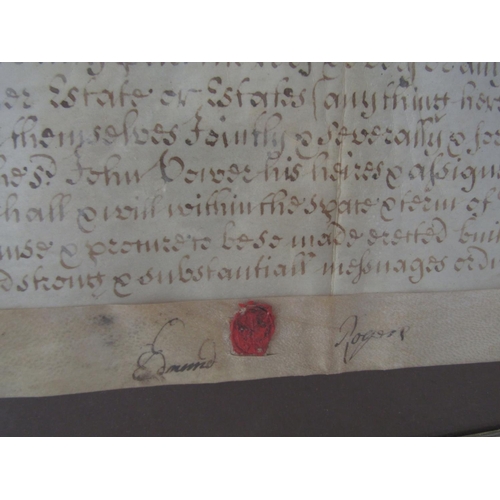 er Estate or Estates (anything her
themselves Jointly & severally & for
he sd. John Bower his heires & assigne
hall & will within the space & terme of
use & procure to be so made erected buil
d strong & substantiall messuages ordi
Edmund Rogers